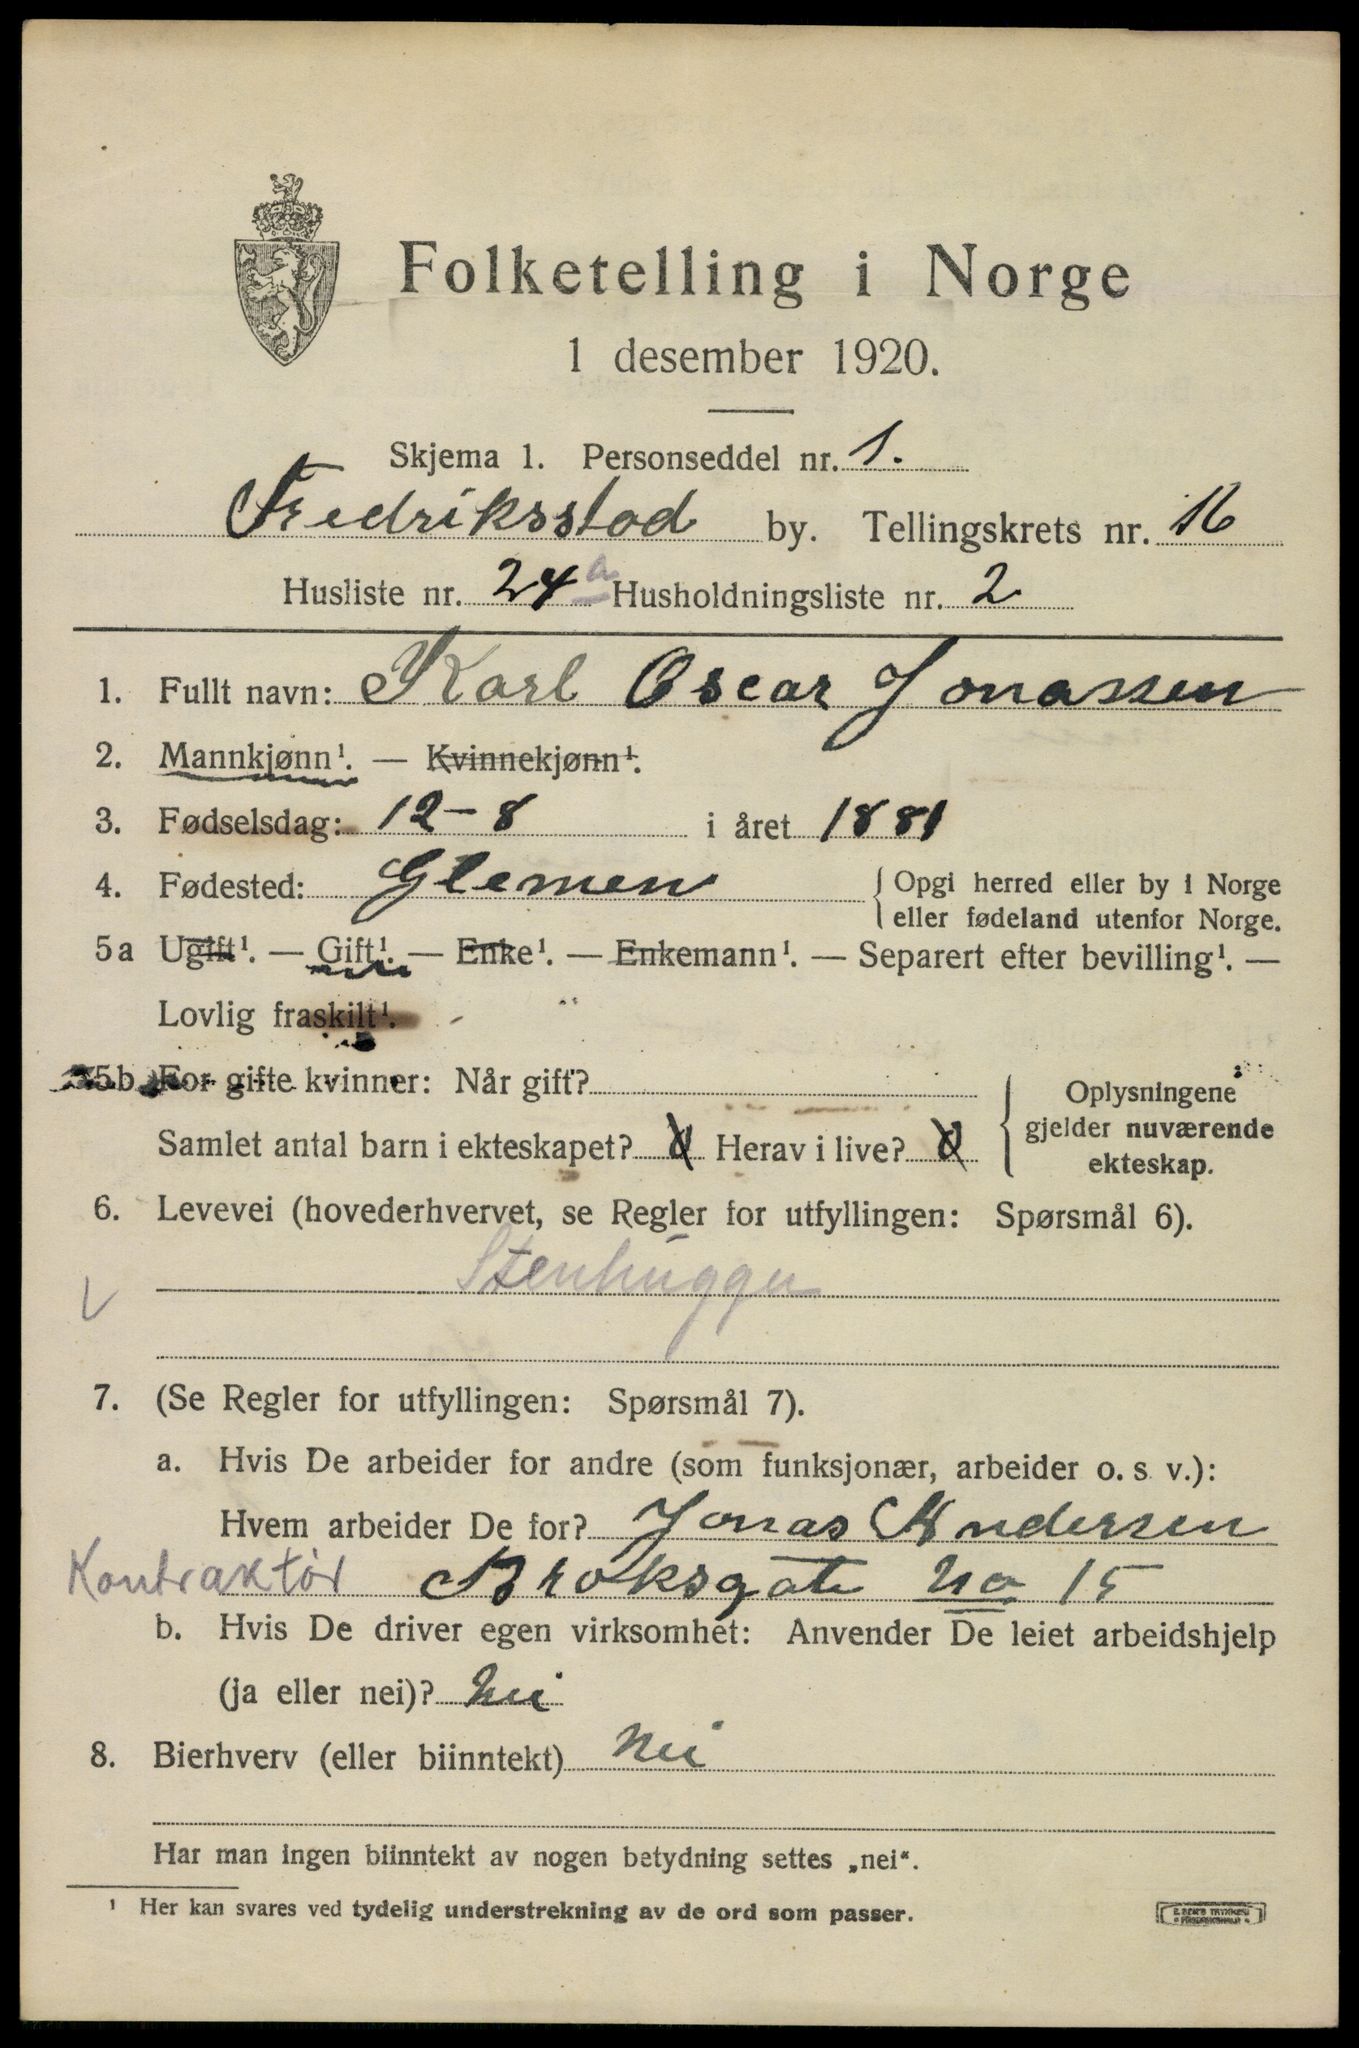 Folketelling i Norge
1 desember 1920.
Skjema 1. Personseddel nr. 1.
Fredriksstad by. Tellingskrets nr. 16
Husliste nr. 24 a Husholdningsliste nr. 2
1. Fullt navn: Karl Oscar Jonassen
2. Mannkjønn¹. — Kvinnekjønn¹.
3. Fødselsdag: 12-8 i året 1881
4. Fødested: Glemen { Opgi herred eller by i Norge
eller fødeland utenfor Norge.
5a Ugift¹. — Gift¹. — Enke¹. — Enkemann¹. — Separert efter bevilling¹. —
Lovlig fraskilt¹.
5b. For gifte kvinner: Når gift?
Samlet antal barn i ekteskapet? Herav i live?
{ Oplysningene
gjelder nuværende
ekteskap.
6. Levevei (hovederhvervet, se Regler for utfyllingen: Spørsmål 6).
Stenhugger
7. (Se Regler for utfyllingen: Spørsmål 7).
a. Hvis De arbeider for andre (som funksjonær, arbeider o. s v.):
Hvem arbeider De for? Jonas Andersen
Kontraktør Broksgate No 15
b. Hvis De driver egen virksomhet: Anvender De leiet arbeidshjelp
(ja eller nei)? Nei
8. Bierhverv (eller biinntekt) Nei
Har man ingen biinntekt av nogen betydning settes „nei“.
¹ Her kan svares ved tydelig understrekning av de ord som passer.